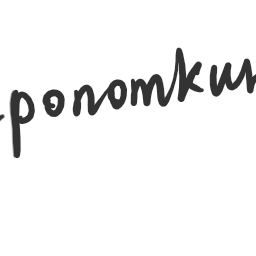 ропоткин